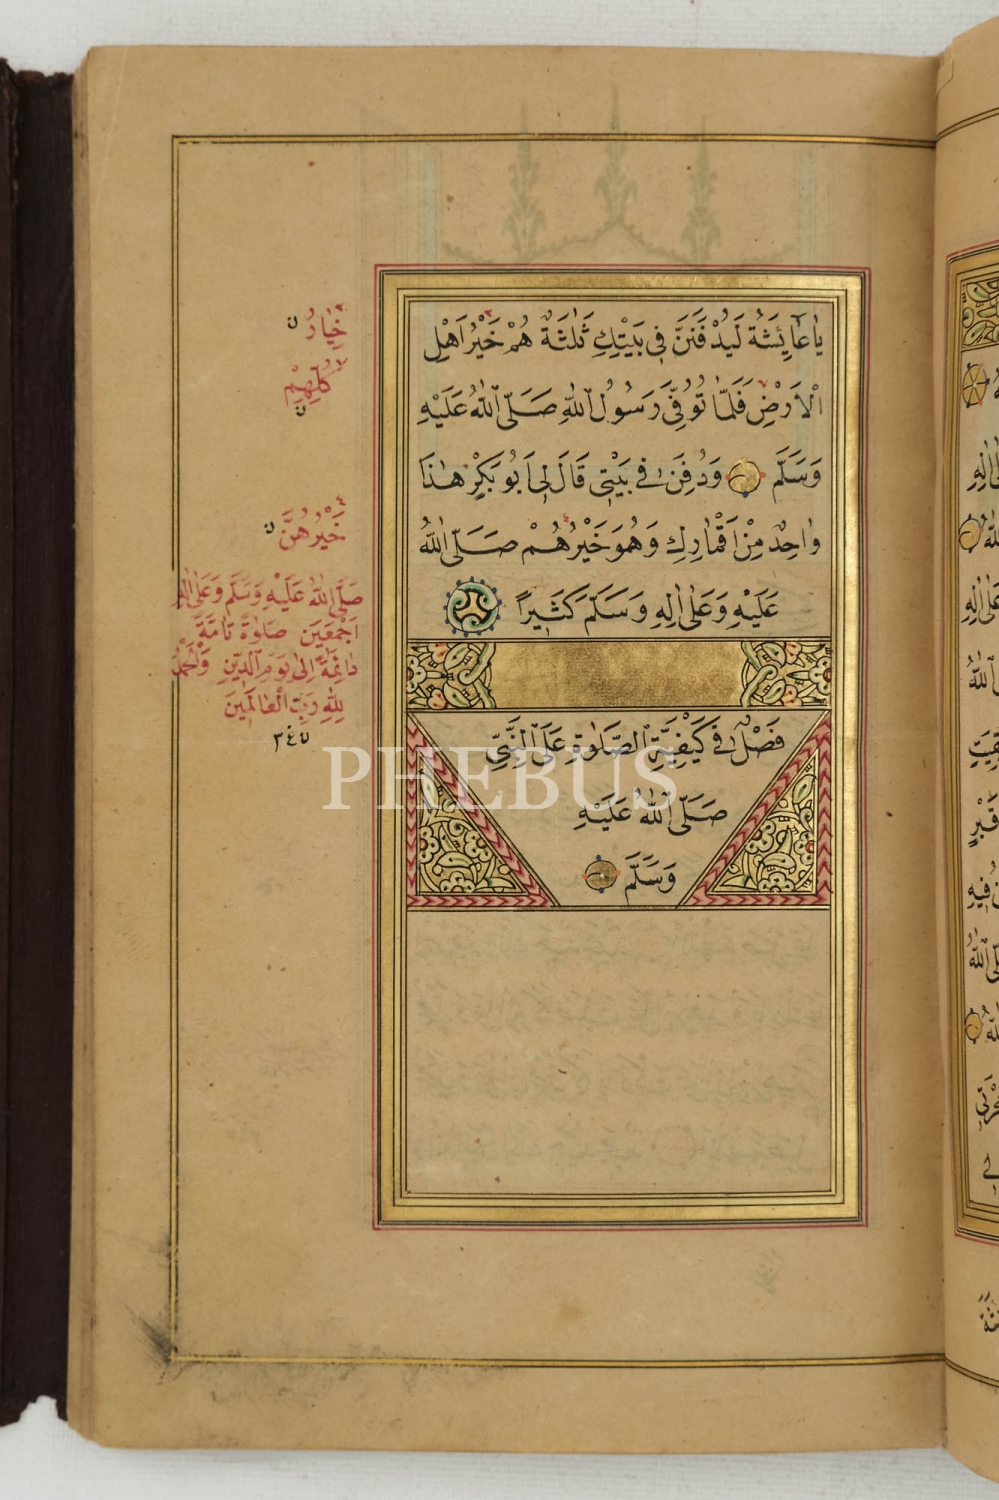 يَا عَائِشَةُ لَيُدْفَنَنَّ فِي بَيْتِكِ ثَلٰثَةٌ هُمْ خَيْرُ اَهْلِ
الْاَرْضِ فَلَمَّا تُوُفِّيَ رَسُولُ اللّٰهِ صَلَّى اللّٰهُ عَلَيْهِ
وَسَلَّمَ وَدُفِنَ فِي بَيْتِي قَالَ لِي اَبُو بَكْرٍ هٰذَا
وَاحِدٌ مِنْ اَقْمَارِكِ وَهُوَ خَيْرُهُمْ صَلَّى اللّٰهُ
عَلَيْهِ وَعَلٰى اٰلِهِ وَسَلَّمَ كَثِيرًا
فَصْلٌ فِي كَيْفِيَّةِ الصَّلٰوةِ عَلَى النَّبِيِّ
صَلَّى اللّٰهُ عَلَيْهِ
وَسَلَّمَ
خِيَارُ ن
كُلِّهِمْ ن
خَيْرُهُنَّ ن
صَلَّى اللّٰهُ عَلَيْهِ وَسَلَّمَ وَعَلٰى اٰلِهِ
اَجْمَعِينَ صَلٰوةً تَامَّةً
دَائِمَةً اِلٰى يَوْمِ الدِّينِ وَالْحَمْدُ
لِلّٰهِ رَبِّ الْعَالَمِينَ
PHEBUS